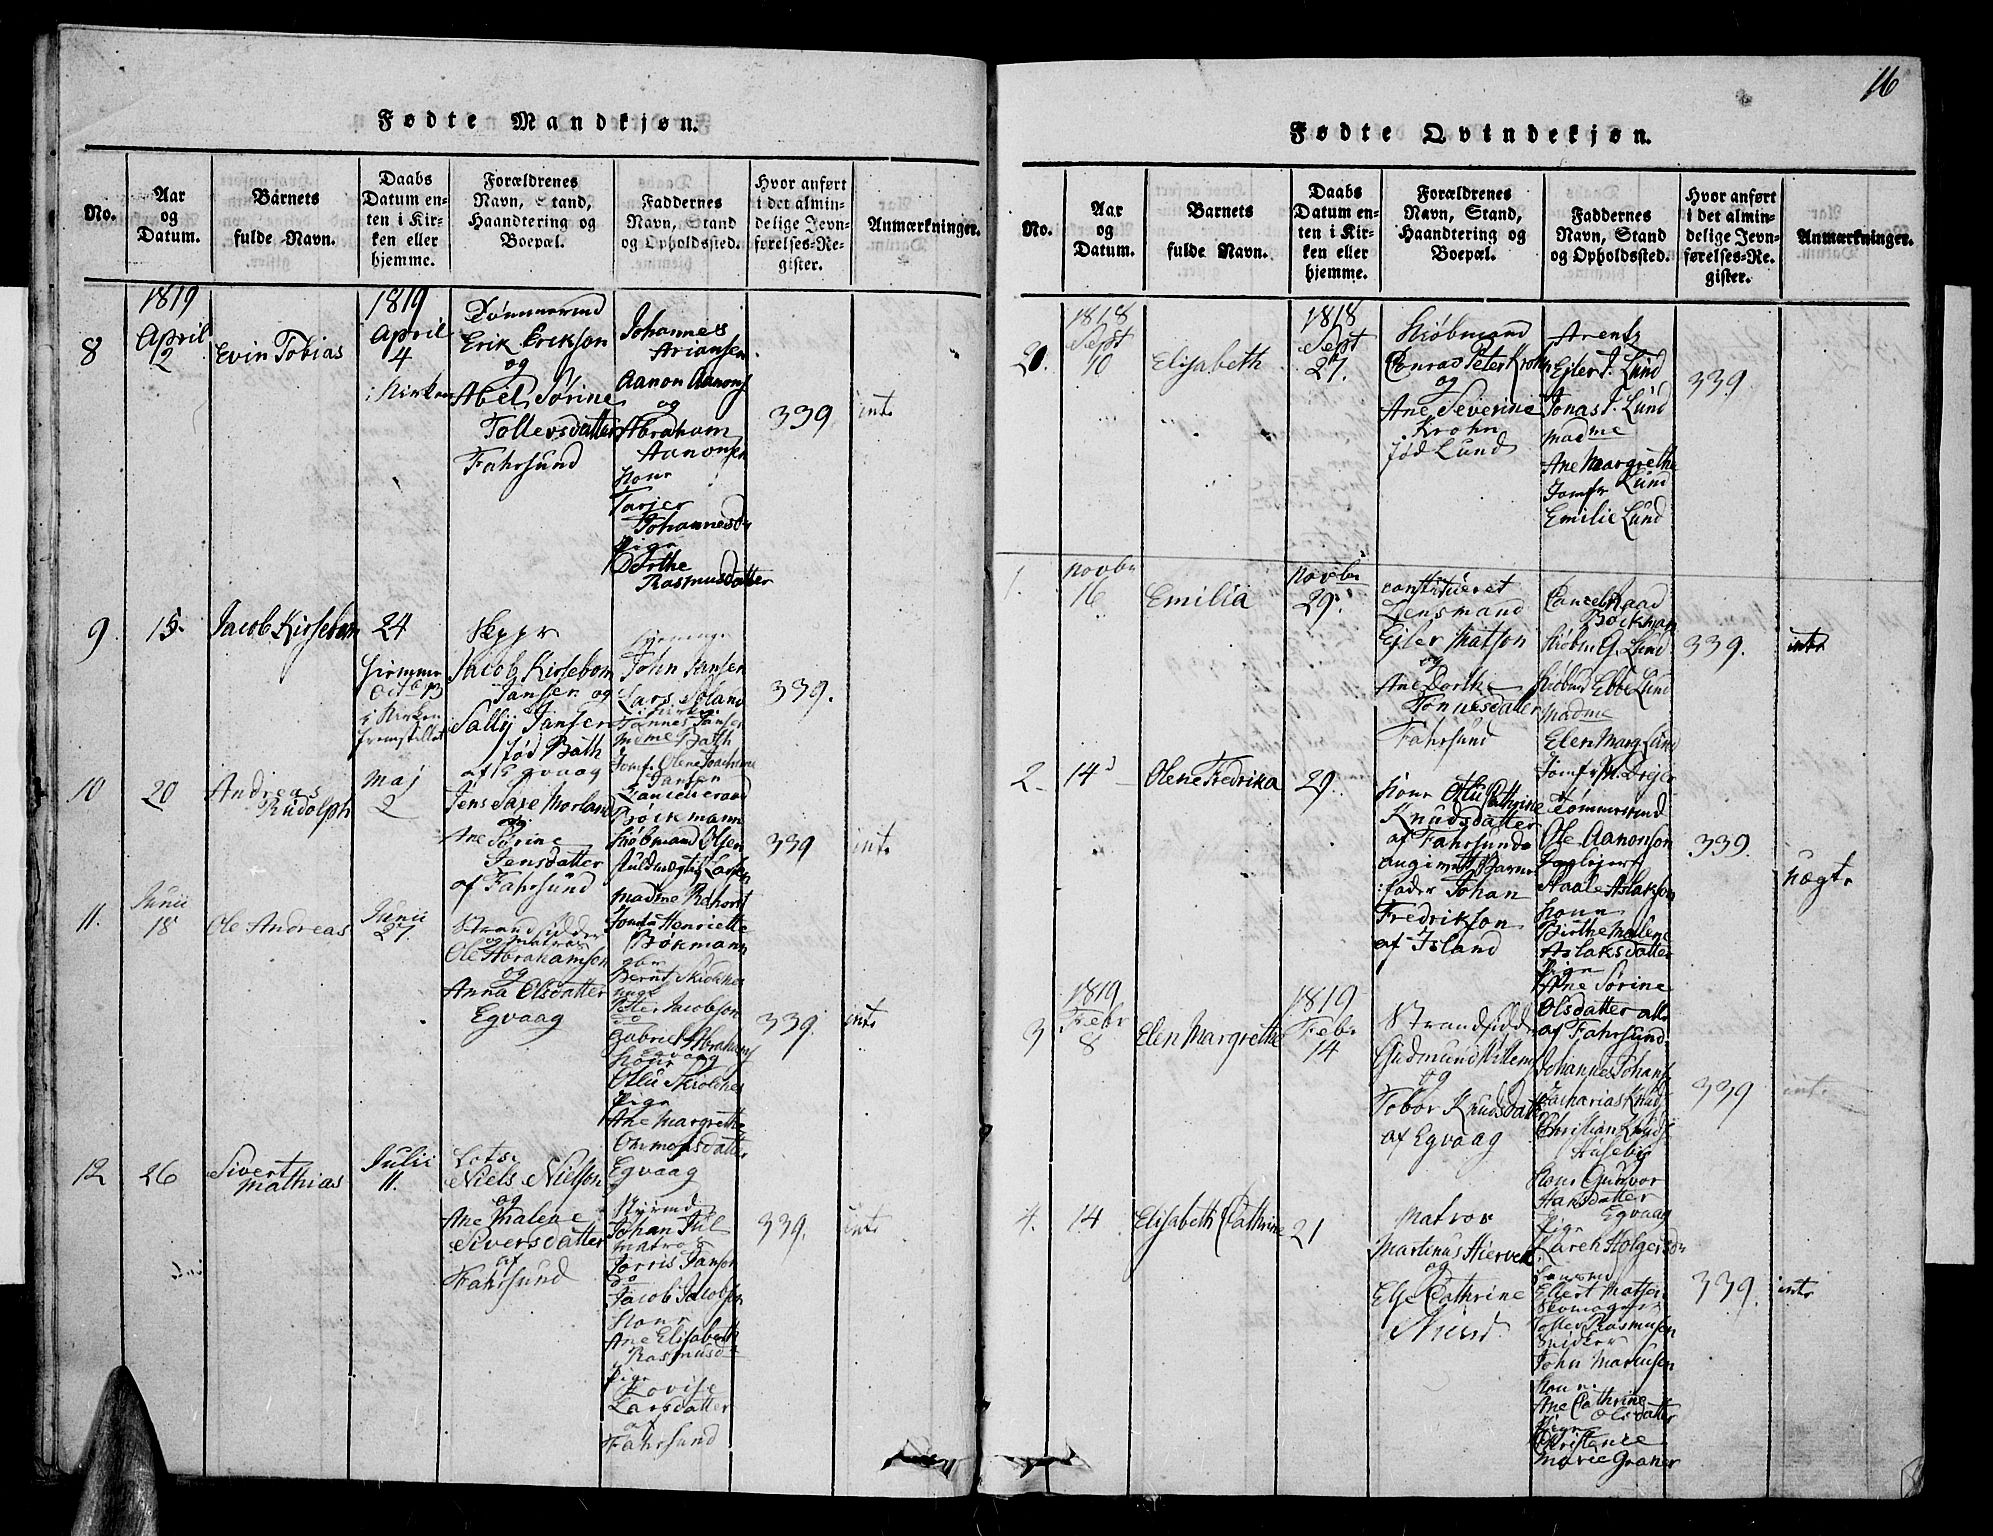 Fødte Mandkjøn.
No.
Aar
og
Datum.
Bårnets
fulde Navn.
Daabs
Datum en-
ten i Kir-
ken eller
hjemme.
Forældrenes
Navn, Stand,
Haandtering og
Boepæl.
Faddernes
Navn, Stand
og Opholdssted.
Hvor anført
i det almin-
delige Jevn-
førelses-Re-
gister.
Anmærkninger.
8
1819
April
2
Evin Tobias
1819
April
4
i Kirken
Tømmermd
Erik Erikson
og
Abel Sørine
Tollevsdatter
Fahrsund
Johannes
Ariansen
Aanon Aanons
og
Abraham
Aanonsen
Kone
Tarjer
Johannesdr
Pige
Dorthe
Rasmusdatter
339
int
9
15.
Jacob Kirsebom
24
hjemme
Octb 13
i Kirken
fremstillet
Skippr
Jacob Kirsebom
Jansen og
Sally Jansen
fød Bath
af Egvaag
John Jansen
Lars Søland
i Kirken
Tønnes Jansen
Mdme Bath
Jomf. Olene Joachime
Jansen
339.
10
20
Andreas
Rudolph
Maj
2
Jens Saxe Morland
og
Ane Sørine
Jensdatter
af Fahrsund
Cancelieraad
Bøckmann
Kiøbmand Olsen
fuldmægtig Larsen
Madme Rehorst
Jomfr Henriette
Bøkmann
339
int
11.
Junii
18
Ole Andreas
Junii
27
Strandsidder
og Matros
Ole Abrahamsen
og
Anna Olsdatter
Egvaag
Bernt
unge
Peter Jacobson
do
Gabriel Abrahams
Egvaag
Kone
Pige
Ane Margrethe
Ommonsdatter
Egvaag
339.
int
12
26
Sivert
Mathias
Julii
11.
Lots
Niels Nielson
og
Ane Malene
Siversdatter
af
Fahrsund
Styrmd
Johan Jul
Matros
Jørris Janson
do
Jacob Jacobson
Kone
Ane Elisabeth
Rasmusdr
Pige
Lovise
Larsdatter
af
Fahrsund
339.
int
16
Fødte Qvindekjøn.
No.
Aar
og
Datum.
Barnets
fulde Navn.
Daabs
Datum en-
ten i Kir-
ken eller
hjemme.
Forældrenes
Navn, Stand,
Haandtering og
Boepæl.
Faddernes
Navn, Stand
og Opholdssted.
Hvor anført
i det almin-
delige Jevn-
førelses-Re-
gister.
Anmærkninger.
20.
1818
Sept
10
Elisabeth
1818
Sept
27.
Kiøbmand
Conrad Peter Krohn
og
Ane Severine
Krohn
fød Lund
Arentz
Ejler J. Lund
Jonas J. Lund
Madme
Ane Margrethe
Lund
Jomfr
Emilie Lund
339.
1.
Novbr
16
Emilia
Novbr
29.
constitueret
Lensmand
Ejler Matson
og
Ane Dorthe
Tønnesdatter
Fahrsund
Cancelliraad
Bøckman
Kiøbm G. Lund
Kiøbm Ebbe Lund
Madme
Elen Marg Lund
339.
int
2.
14
Olene Fredrika
29.
Kone Cathrine
Knudsdatter
af Fahrsund
angivet Barne-
fader Johan
Fredrikson
af Island
Tømmermand
Ole Aanonson
Staale Aslakson
Kone
Birthe Malene
Aslaksdatter
Pige
Ane Sørine
Olsdatter alle
af Fahrsund
339.
uægte
3
1819
Febr
8
Elen Margrethe
1819
Febr
14
Strandsidder
Gudmund Willems
og
Tobor Knudsdatter
af Egvaag
Johannes Johans
Zacharias Knuds
Christian Knuds
Huseby
Kone Gunvor
Hansdatter
Egvaag
Pige
Karen Holgersdr
339
int
4.
14
Elisabeth Cathrine
21
Matros
Martinus Hierved
og
Else Cathrine
Lensmd
Ellert Matsen
Skomager
Tollev Rasmusen
Snidker
John Mariusen
Kone
Ane Cathrine
Olsdatter
Pige
Christence
Marie Graner
339.
int